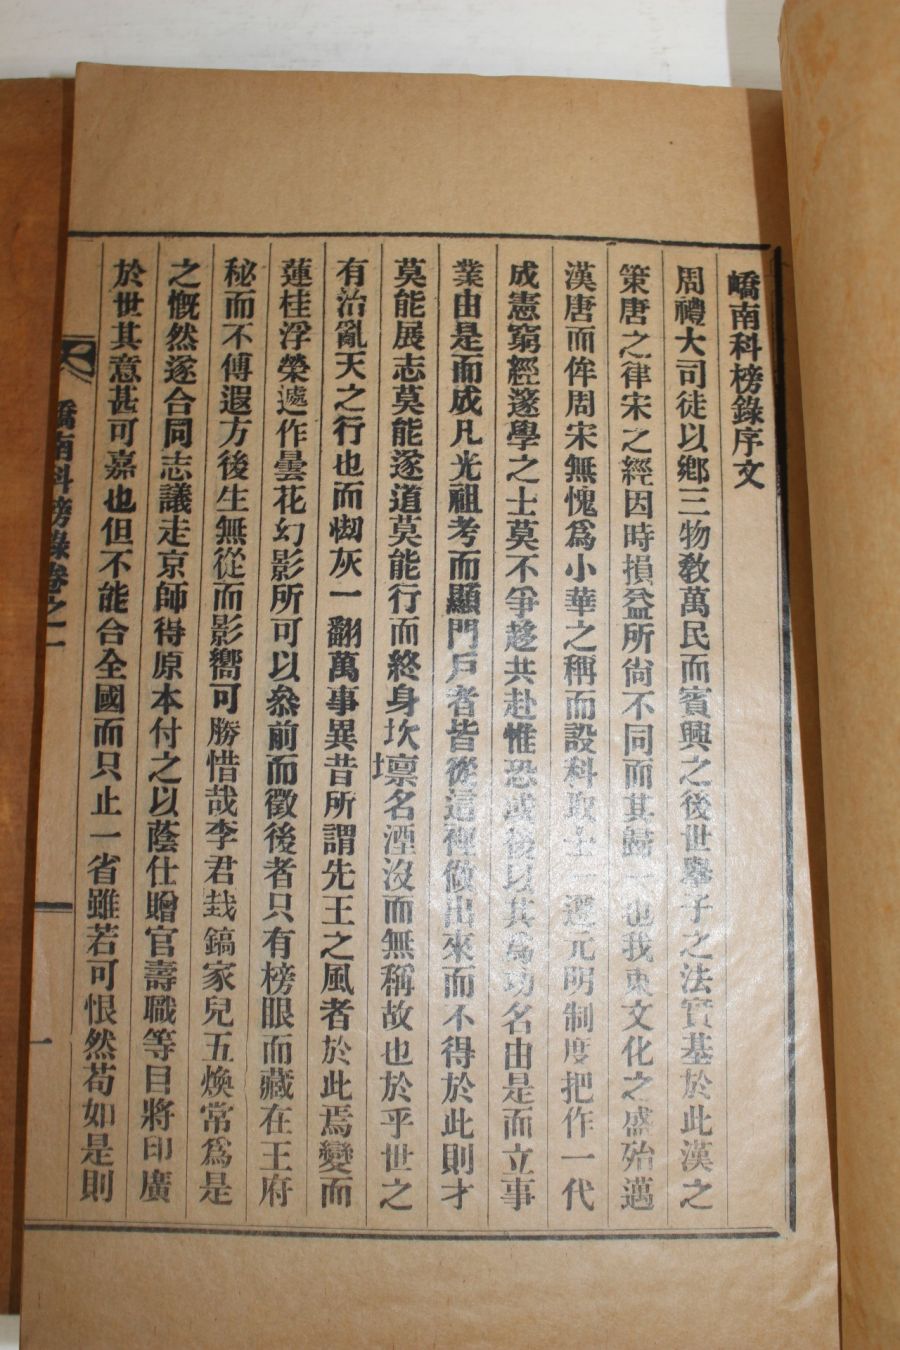 嶠南科榜錄序文
周禮大司徒以鄕三物敎萬民而賓興之後世擧子之法實基於此漢之
策唐之律宋之經因時損益所尙不同而其歸一也我東文化之盛殆邁
漢唐而侔周宋無愧爲小華之稱而設科取士一遵元明制度把作一代
成憲窮經邃學之士莫不爭趍共赴惟恐或後以其爲功名由是而立事
業由是而成凡光祖考而顯門戶者皆從這裡做出來而不得於此則才
莫能展志莫能遂道莫能行而終身坎壈名湮沒而無稱故也於乎世之
有治亂天之行也而刼灰一翻萬事異昔所謂先王之風者於此焉變而
蓮桂浮榮遽作曇花幻影所可以叅前而徵後者只有榜眼而藏在王府
秘而不傳遐方後生無從而影嚮可勝惜哉李君鎬家兒五煥常爲是
之慨然遂合同志議走京師得原本付之以蔭仕贈官壽職等目將印廣
於世其意甚可嘉也但不能合全國而只止一省雖若可恨然苟如是則
嶠南科榜錄卷之一
一